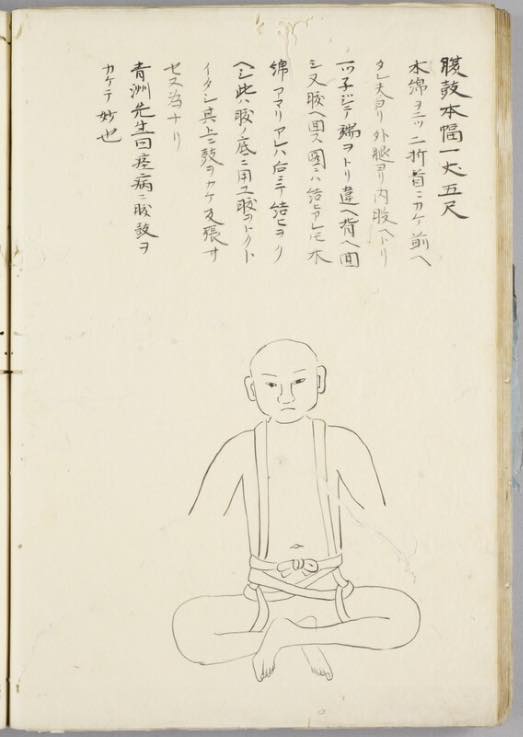 股鼓本幅一丈五尺
木綿ヲニツニ折首ニカケ前ヘ
タレ夫ヨリ外腿ヨリ内股ヘトリ
一ツ子ジテ端ヲトリ違ヘ背ヘ回
シ又腹ヘ回ス図ニハ結ヒアレ𪜈木
綿アマリアレハ后ニテ結ヒヲク
ヘシ此ハ股ノ底ニ用ユ股ヲトクト
イタシ其上ニ鼓ヲカケ支張サ
セヌ為ナリ
青洲先生曰痙病ニ股鼓ヲ
カケテ妙也